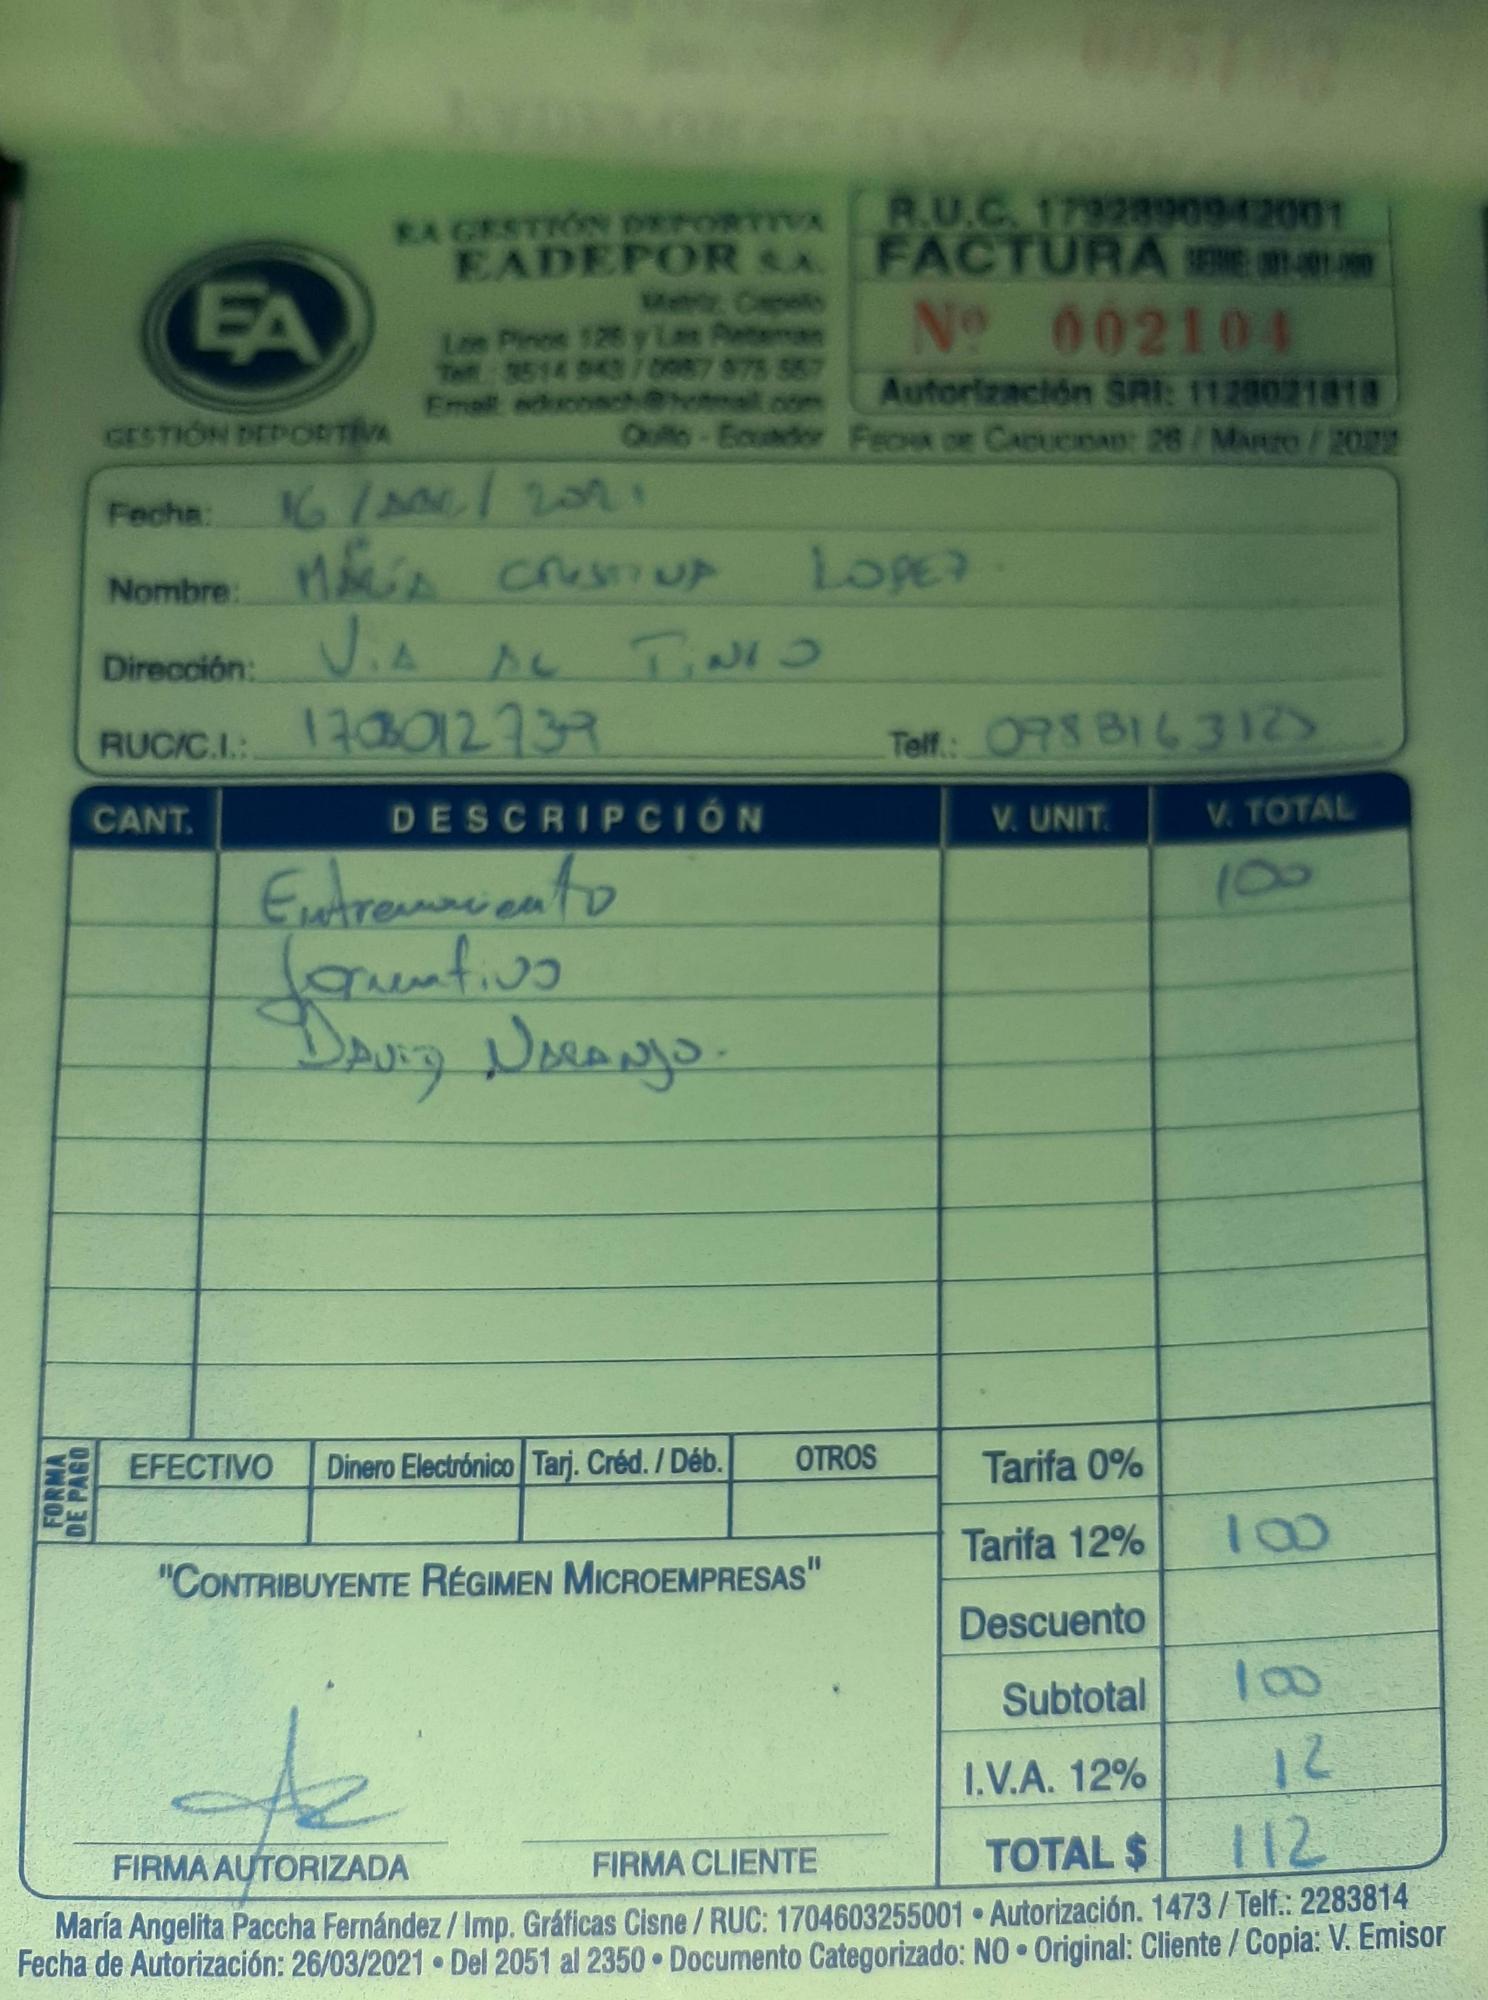 EA
GESTIÓN DEPORTIVA
EA GESTIÓN DEPORTIVA
EADEPOR S.A.
Matriz: Capelo
Los Pinos 126 y Las Retamas
Telf.: 3514 943 / 0987 975 557
Email: educoach@hotmail.com
Quito - Ecuador
R.U.C. 1792890942001
FACTURA SERIE: 001-001-000
Nº 002104
Autorización SRI: 1128021818
FECHA DE CADUCIDAD: 26 / MARZO / 2022
Fecha: 16 / ABR / 2021
Nombre: MARÍA CRISTINA LOPEZ
Dirección: VIA AL TINGO
RUC/C.I.: 1703012739 Telf.: 0988163123
CANT. DESCRIPCIÓN V. UNIT. V. TOTAL
Entrenamiento 100
formativo
DAVID NARANJO.
FORMA DE PAGO
EFECTIVO Dinero Electrónico Tarj. Créd. / Déb. OTROS
Tarifa 0%
Tarifa 12% 100
Descuento
Subtotal 100
I.V.A. 12% 12
TOTAL $ 112
"CONTRIBUYENTE RÉGIMEN MICROEMPRESAS"
FIRMA AUTORIZADA FIRMA CLIENTE
María Angelita Paccha Fernández / Imp. Gráficas Cisne / RUC: 1704603255001 • Autorización. 1473 / Telf.: 2283814
Fecha de Autorización: 26/03/2021 • Del 2051 al 2350 • Documento Categorizado: NO • Original: Cliente / Copia: V. Emisor